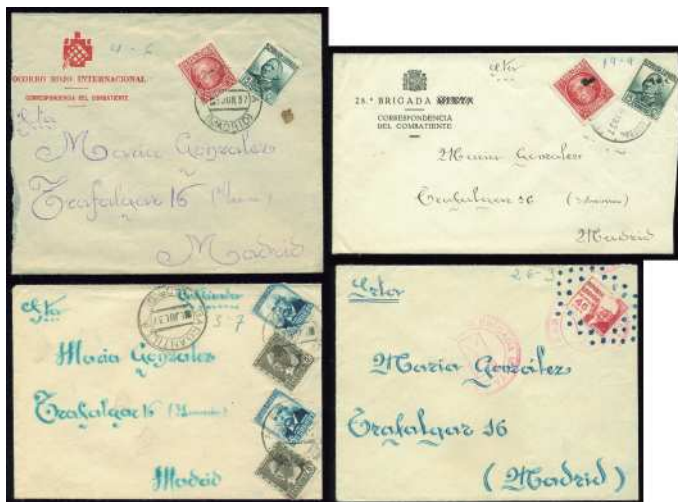 4-6
SOCORRO ROJO INTERNACIONAL
CORRESPONDENCIA DEL COMBATIENTE
JUN 37
Srta
Maria Gonzalez
Trafalgar 16
Madrid
Srta
19-9
28.ª BRIGADA MIXTA
CORRESPONDENCIA
DEL COMBATIENTE
Maria Gonzalez
Trafalgar 16
Madrid
Srta
3-7
JUL 37
Maria Gonzalez
Trafalgar 16
Madrid
Srta
26-9
45
Maria González
Trafalgar 16
(Madrid)